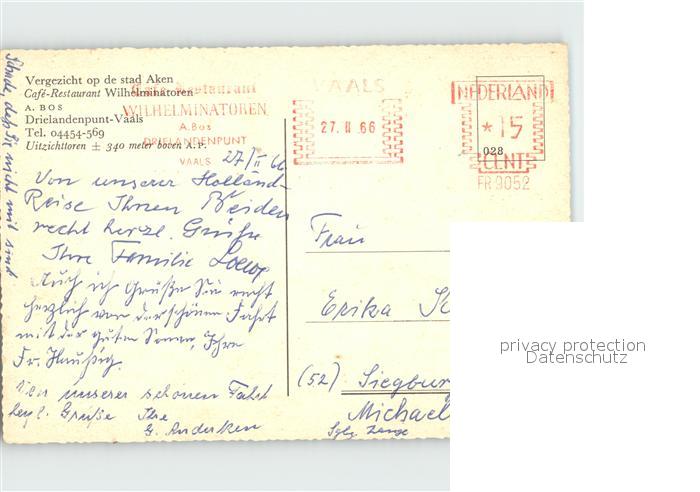 Vergezicht op de stad Aken
Café-Restaurant Wilhelminatoren
A. BOS
Drielandenpunt-Vaals
Tel. 04454-569
Uitzichttoren ± 340 meter boven A.P.
Café Restaurant
WILHELMINATOREN
A. Bos
DRIELANDENPUNT
VAALS
VAALS
27. II 66
NEDERLAND
* 15
028
CENT
FR 9052
27/II 66
Von unserer Holland-
Reise Ihnen Beiden
recht herzl. Grüße
Ihre Familie
Auch ich Grüße Sie recht
herzlich von der schönen Fahrt
mit der guten Sonne, Ihre
Fr.
Von unserer schönen Fahrt
herzl. Grüße Ihre
G.
Schade, daß Sie nicht mit sind
Frau
Erika
(52) Siegbur
Michael
privacy protection
Datenschutz